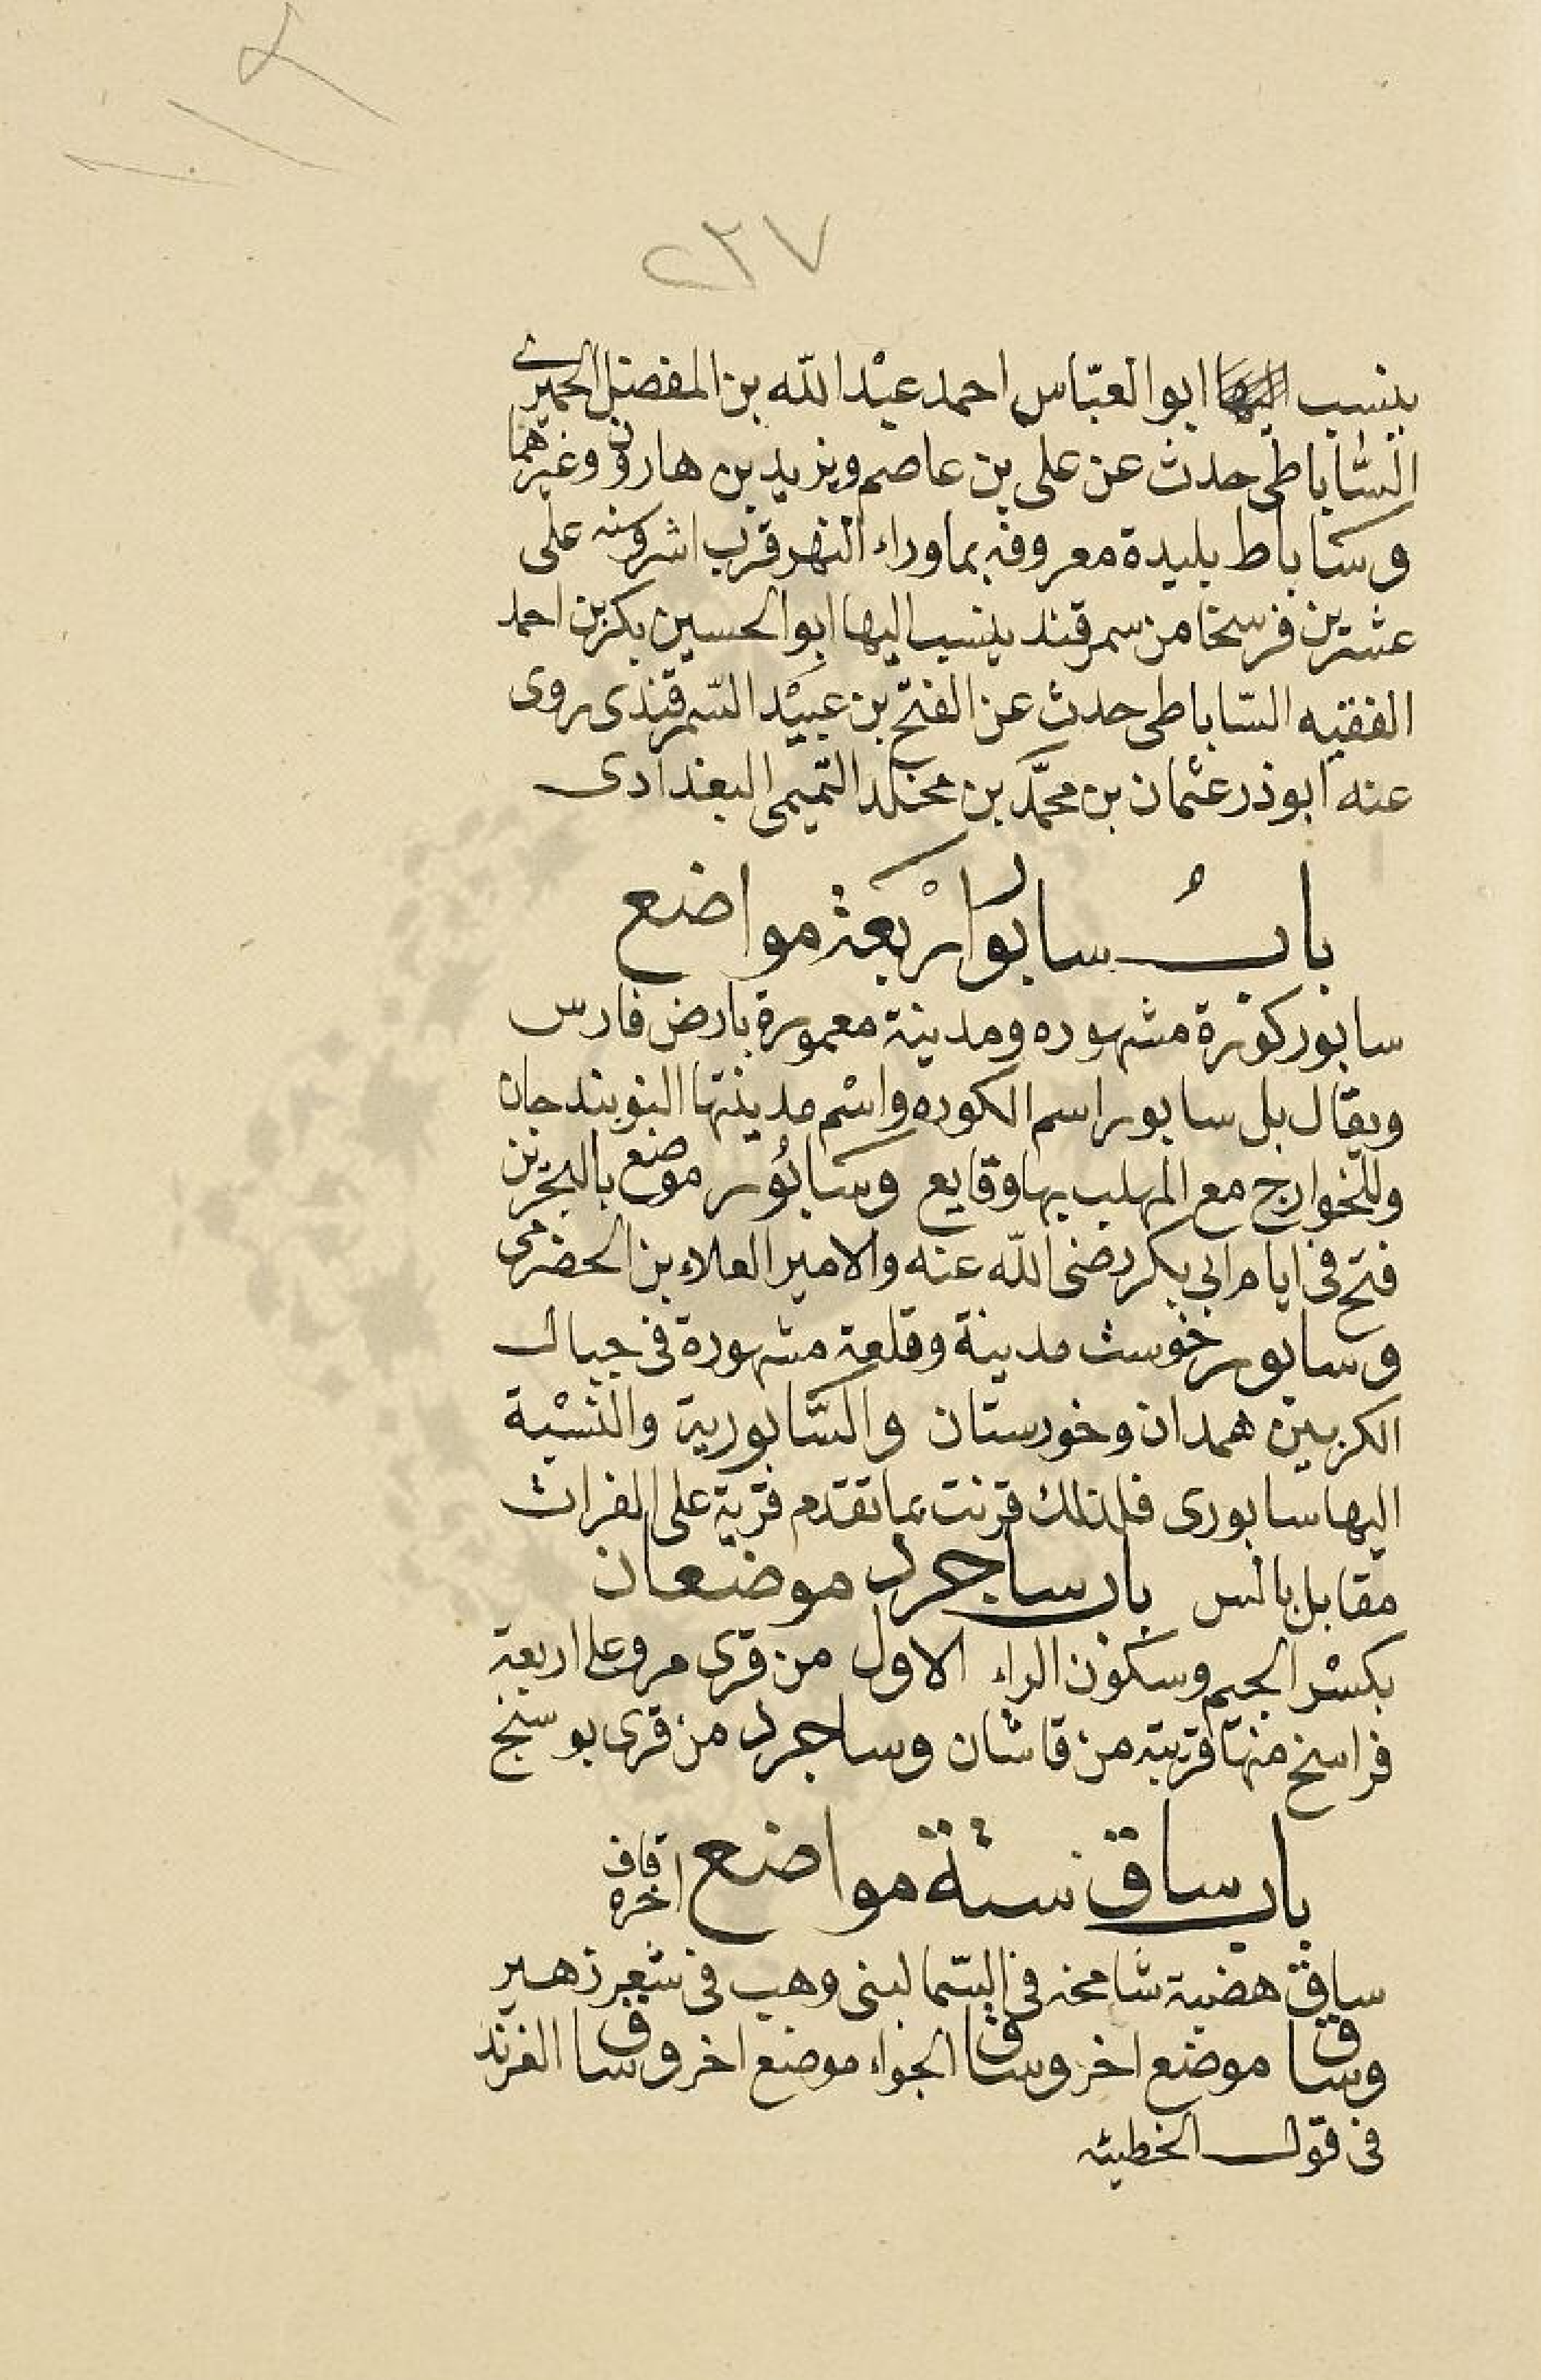 ٢٣٧
ينسب ابو العبّاس احمد عبْد الله بن المفضل الحميرى
السَّاباطى حدث عن على بن عاصم ويزيد بن هارون وغيرهما
وساباط بليدة معروفه بماوراء النهر قرب اشروسنه على
عشرين فرسخا من سمرقند ينسب اليها ابو الحسين بكر بن احمد
الفقيه السّاباطى حدث عن الفتح بن عبيْد السّمرقندى روى
عنه ابوذر عثمان بن محمَّد بن مخلد التميمى البغدادى
بابُ سابور ارْبعة مواضع
سابور كورة مشهوره ومدينة معمورة بارض فارس
ويقال بل سابور اسم الكوره واسْم مدينتها النوبندجان
وللخوارج مع المهلب بها وقايع وسَابُور موضع بالبحرين
فتح فى ايام ابى بكر رضى الله عنه والامير العلاء بن الحضرمى
وسابور خوست مدينة وقلعة مشهورة فى جبال
الكر بين همدان وخورستان والسَّابورية والنسْبة
اليها سابورى فلذلك قرنت بما تقدم قرية على الفراث
مقابل بالس باب ساجرد موضعان
بكسْر الجيم وسكون الراء الاول من قرى مرو على اربعة
فراسخ منها قريبة من قاشان وساجرد من قرى بوسنج
باب ساق ستة مواضع اخره قاف
ساق هضبة شامخه فى السّما لبنى وهب فى شعر زهير
وساق موضع اخر وساق الجواء موضع اخر وساق الفرند
فى قول الخطيئه